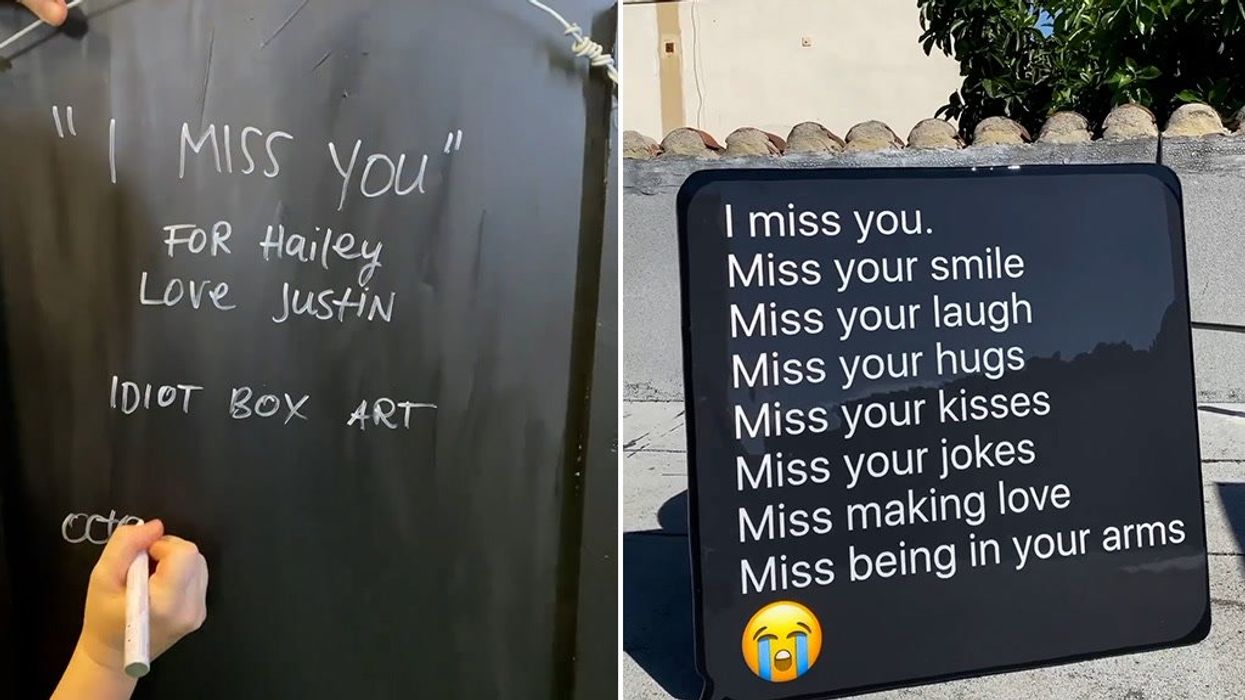 " I MISS YOU"
FOR Hailey
Love Justin
IDIOT BOX ART
I miss you.
Miss your smile
Miss your laugh
Miss your hugs
Miss your kisses
Miss your jokes
Miss making love
Miss being in your arms
😭